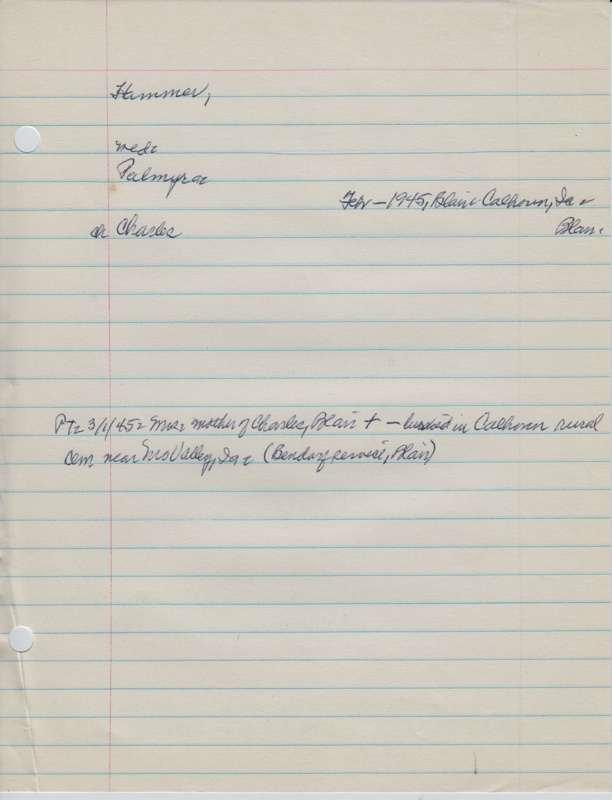 Hammer,
med:
Palmyra
Feb - 1945, Blair: Calhoun, Ia:
ch Charles
Blair:
PT: 3/1/45: Mrs: mother of Charles, Blair + - buried in Calhoun rural
cem near Mo Valley, Ia: (Bendorf service, Blair)